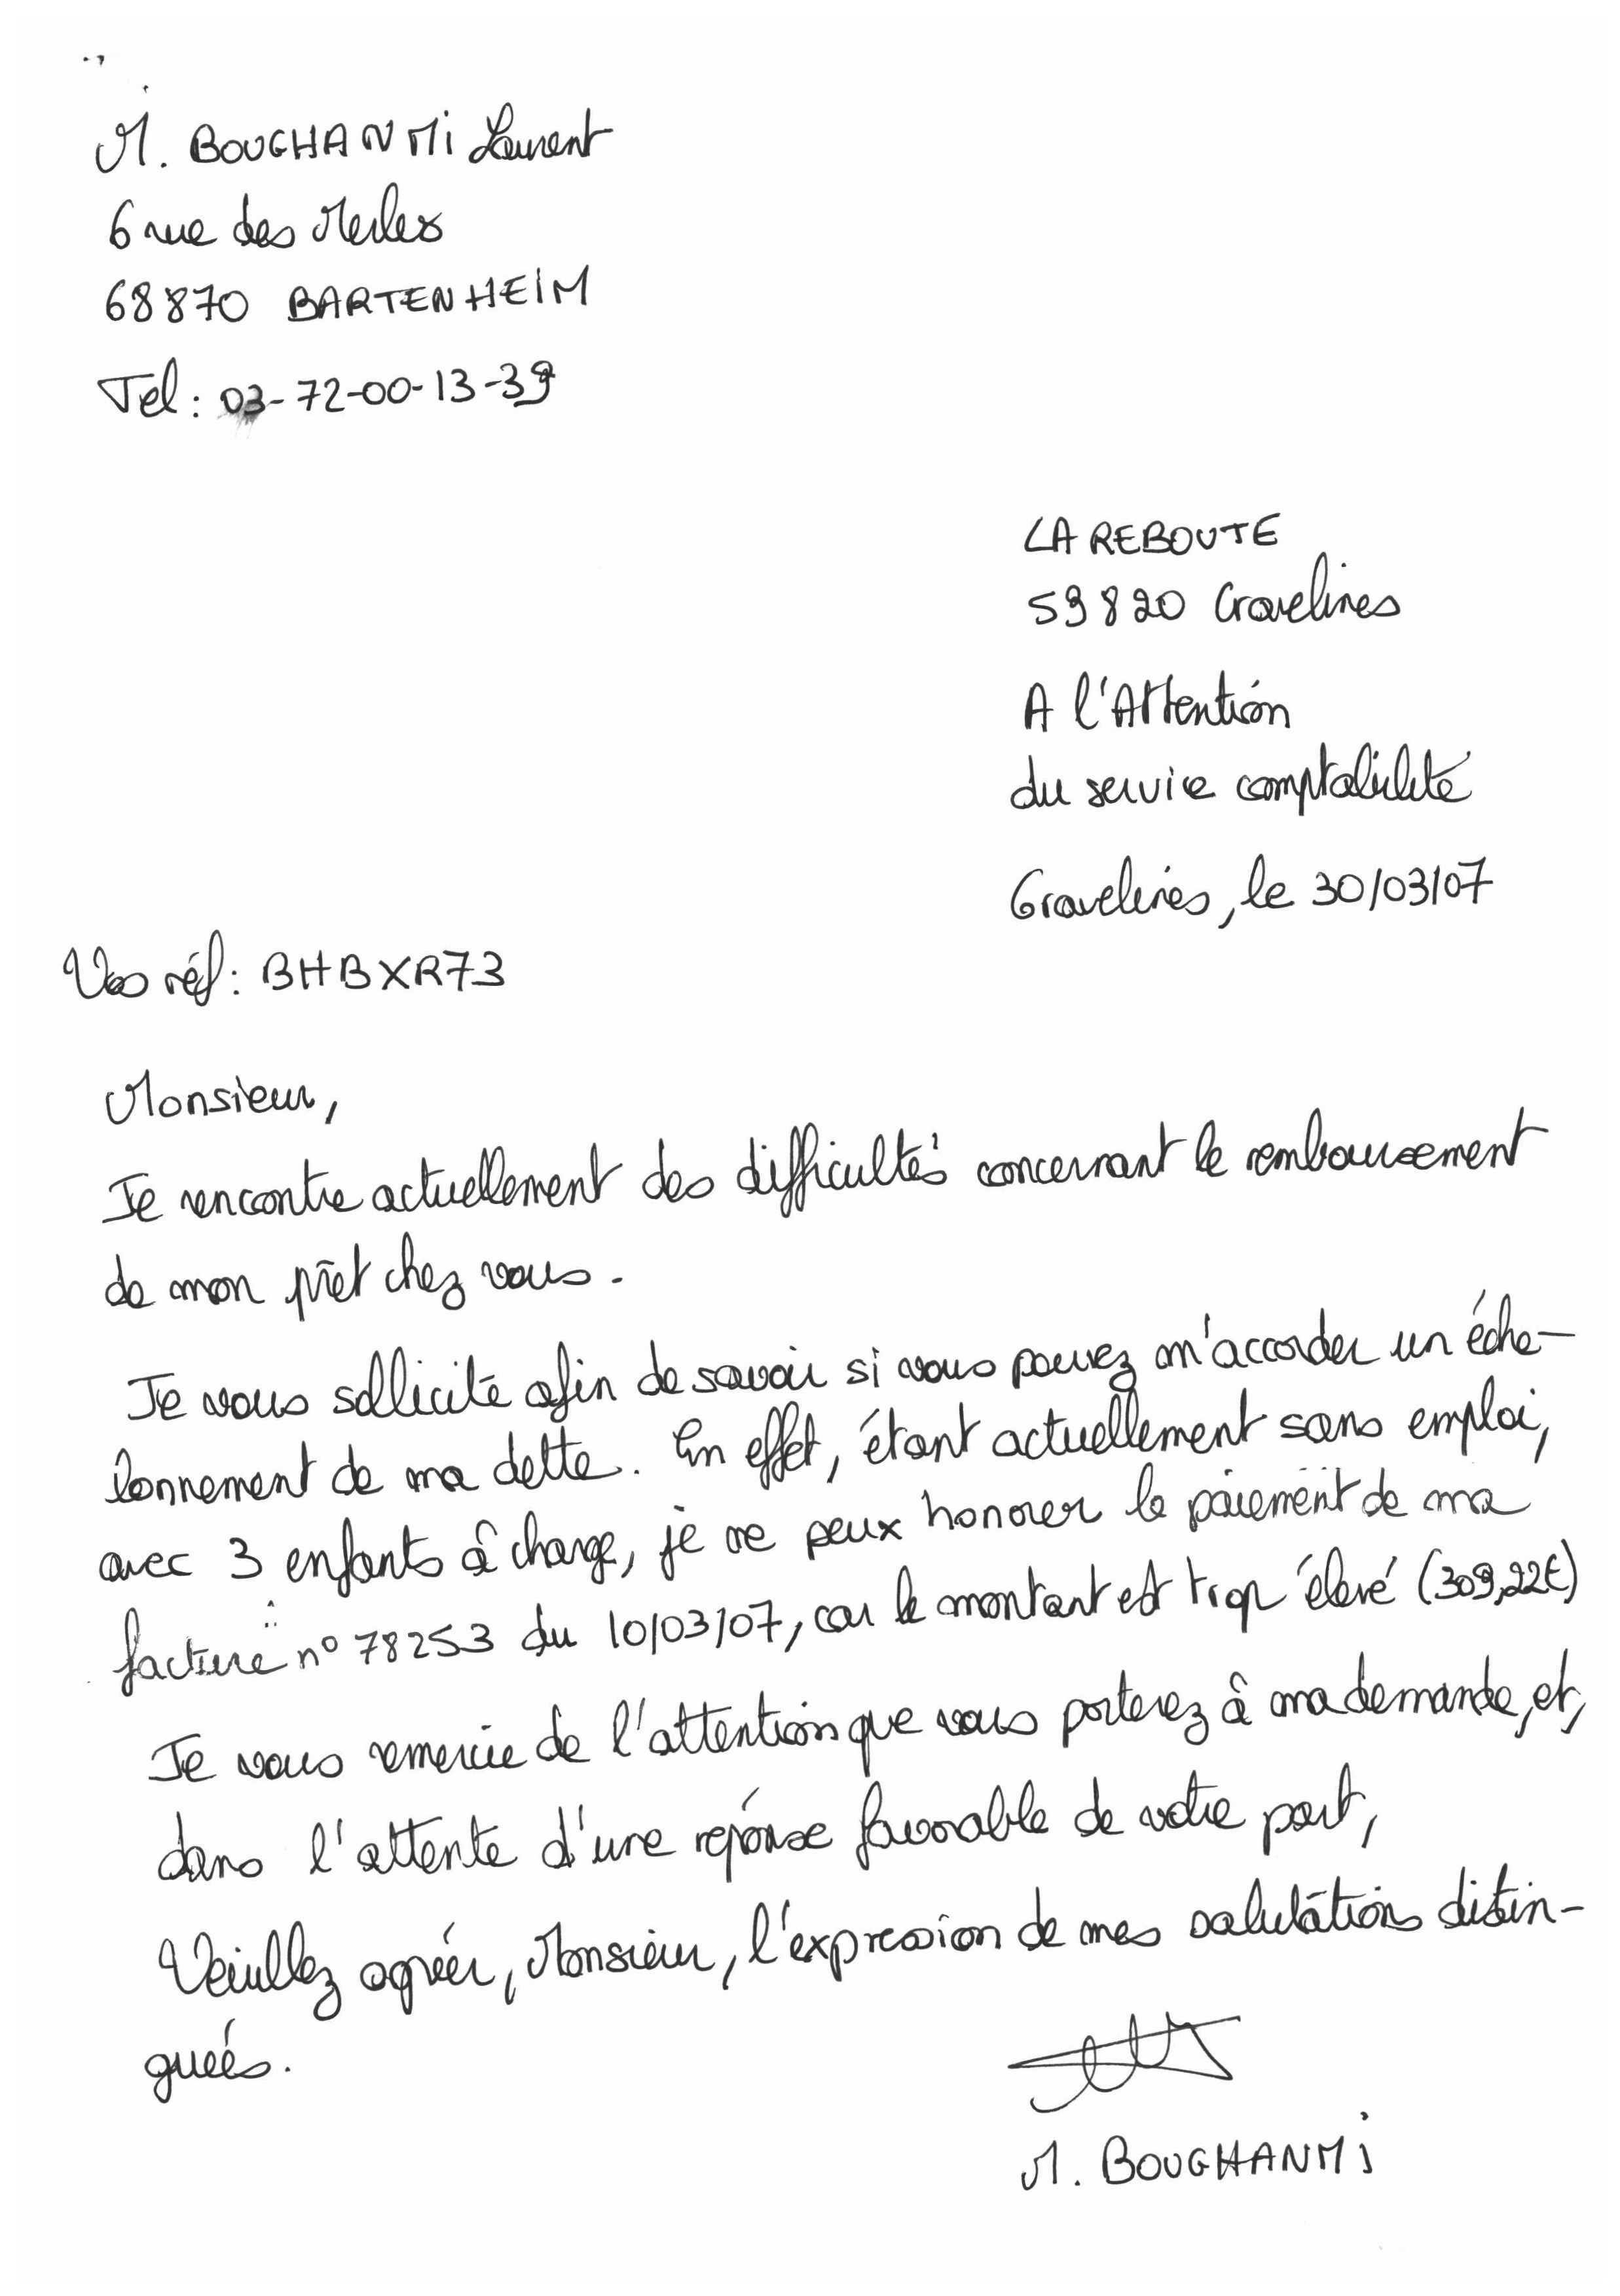 M. BOUGHANMI Laurent
6 rue des Merles
68870 BARTENHEIM
Tel : 03-72-00-13-39
LA REBOUTE
59820 Gravelines
A l'Attention
du service comptabilité
Gravelines, le 30/03/07
Vos réf : BHBXR73
Monsieur,
Je rencontre actuellement des difficultés concernant le remboursement
de mon prêt chez vous.
Je vous sollicite afin de savoir si vous pouvez m'accorder un éche-
lonnement de ma dette. En effet, étant actuellement sans emploi,
avec 3 enfants à charge, je ne peux honorer le paiement de ma
facture n° 78253 du 10/03/07, car le montant est trop élevé (309,22€)
Je vous remercie de l'attention que vous porterez à ma demande, et,
dans l'attente d'une réponse favorable de votre part,
Veuillez agréer, Monsieur, l'expression de mes salutations distin-
guées.
M. BOUGHANMI